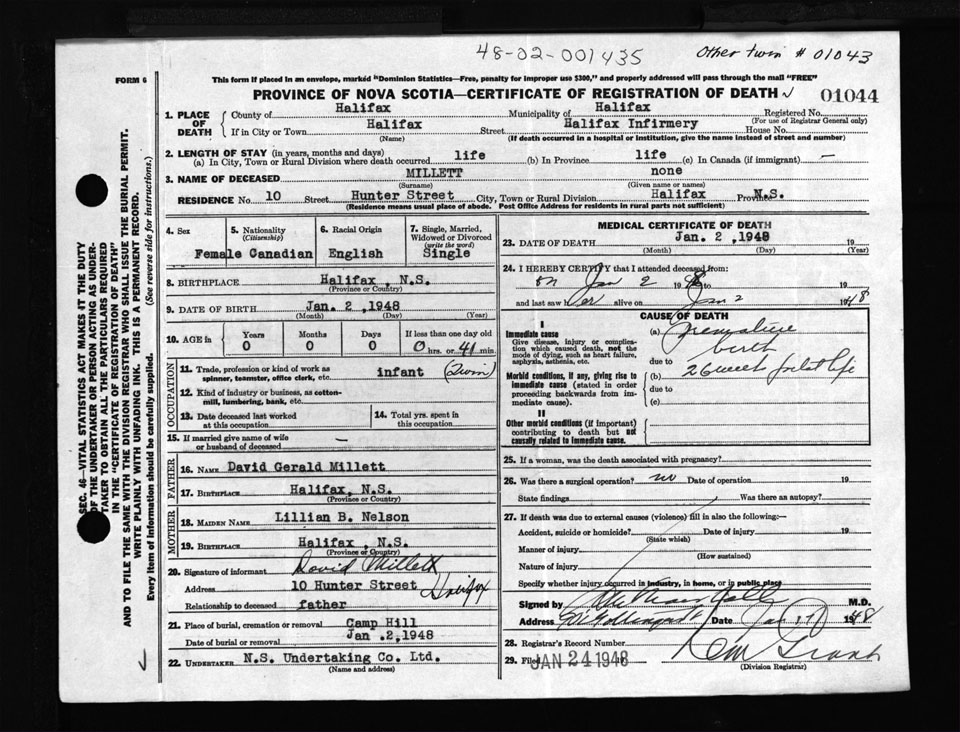 48-02-001435
Other twin # 01043
FORM 6
This form if placed in an envelope, marked "Dominion Statistics—Free, penalty for improper use $300," and properly addressed will pass through the mail "FREE"
PROVINCE OF NOVA SCOTIA—CERTIFICATE OF REGISTRATION OF DEATH
01044
1. PLACE OF DEATH
County of Halifax Municipality of Halifax Registered No.
(For use of Registrar General only)
If in City or Town Halifax Street Halifax Infirmery House No.
(Name) (If death occurred in a hospital or institution, give the name instead of street and number)
2. LENGTH OF STAY (in years, months and days)
(a) In City, Town or Rural Division where death occurred life (b) In Province life (c) In Canada (if immigrant) —
3. NAME OF DECEASED MILLETT none
(Surname) (Given name or names)
RESIDENCE No. 10 Street Hunter Street City, Town or Rural Division Halifax Province N.S.
(Residence means usual place of abode. Post Office Address for residents in rural parts not sufficient)
4. Sex Female
5. Nationality (Citizenship) Canadian
6. Racial Origin English
7. Single, Married, Widowed or Divorced (write the word) Single
8. BIRTHPLACE Halifax, N.S.
(Province or Country)
9. DATE OF BIRTH Jan. 2, 1948
(Month) (Day) (Year)
10. AGE in Years Months Days If less than one day old
0 0 0 0 hrs. or 41 min.
OCCUPATION
11. Trade, profession or kind of work as spinner, teamster, office clerk, etc. infant (Twin)
12. Kind of industry or business, as cotton-mill, lumbering, bank, etc.
13. Date deceased last worked at this occupation
14. Total yrs. spent in this occupation
15. If married give name of wife or husband of deceased —
FATHER
16. NAME David Gerald Millett
17. BIRTHPLACE Halifax, N.S.
(Province or Country)
MOTHER
18. MAIDEN NAME Lillian B. Nelson
19. BIRTHPLACE Halifax, N.S.
(Province or Country)
20. Signature of informant David Millett
Address 10 Hunter Street Halifax
Relationship to deceased father
21. Place of burial, cremation or removal Camp Hill
Date of burial or removal Jan .2, 1948
22. UNDERTAKER N.S. Undertaking Co. Ltd.
(Name and address)
MEDICAL CERTIFICATE OF DEATH
23. DATE OF DEATH Jan. 2, 1948 19
(Month) (Day) (Year)
24. I HEREBY CERTIFY that I attended deceased from:
on Jan 2 1948 to 19
and last saw her alive on Jan 2 1948
CAUSE OF DEATH
I
Immediate cause
Give disease, injury or complication which caused death, not the mode of dying, such as heart failure, asphyxia, asthenia, etc.
(a) Premature birth
due to
Morbid conditions, if any, giving rise to immediate cause (stated in order proceeding backwards from immediate cause).
(b) 26 weeks foetal life
due to
(c)
II
Other morbid conditions (if important) contributing to death but not causally related to immediate cause.
25. If a woman, was the death associated with pregnancy?
26. Was there a surgical operation? no Date of operation 19
State findings Was there an autopsy?
27. If death was due to external causes (violence) fill in also the following:—
Accident, suicide or homicide? Date of injury 19
(State which)
Manner of injury
(How sustained)
Nature of injury
Specify whether injury occurred in industry, in home, or in public place
Signed by M.D.
Address Date Jan 17 1948
28. Registrar's Record Number
29. Filed JAN 24 1948
(Division Registrar)
SEC. 46—VITAL STATISTICS ACT MAKES IT THE DUTY
OF THE UNDERTAKER OR PERSON ACTING AS UNDER-
TAKER TO OBTAIN ALL THE PARTICULARS REQUIRED
IN THE "CERTIFICATE OF REGISTRATION OF DEATH"
AND TO FILE THE SAME WITH THE DIVISION REGISTRAR WHO SHALL ISSUE THE BURIAL PERMIT.
WRITE PLAINLY WITH UNFADING INK. THIS IS A PERMANENT RECORD.
Every item of information should be carefully supplied. (See reverse side for instructions.)